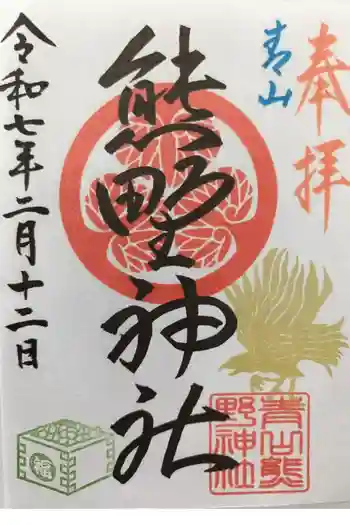 奉拝
青山
熊野神社
令和七年二月十二日
青山熊
野神社
福